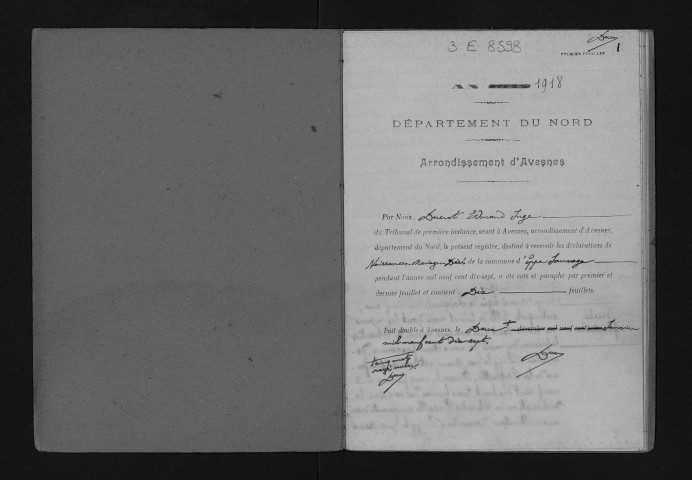 3 E 8598
1
PREMIER FEUILLET
AN 1918
DÉPARTEMENT DU NORD
Arrondissement d'Avesnes
Par Nous, Juge
du Tribunal de première instance, séant à Avesnes, arrondissement d'Avesnes,
département du Nord, le présent registre, destiné à recevoir les déclarations de
Naissances-Mariages-Décès de la commune d'Eppe Sauvage
pendant l'année mil neuf cent dix-sept, a été coté et paraphé par premier et
dernier feuillet et contient Dix feuillets.
Fait double à Avesnes, le Janvier
mil neuf cent dix sept.